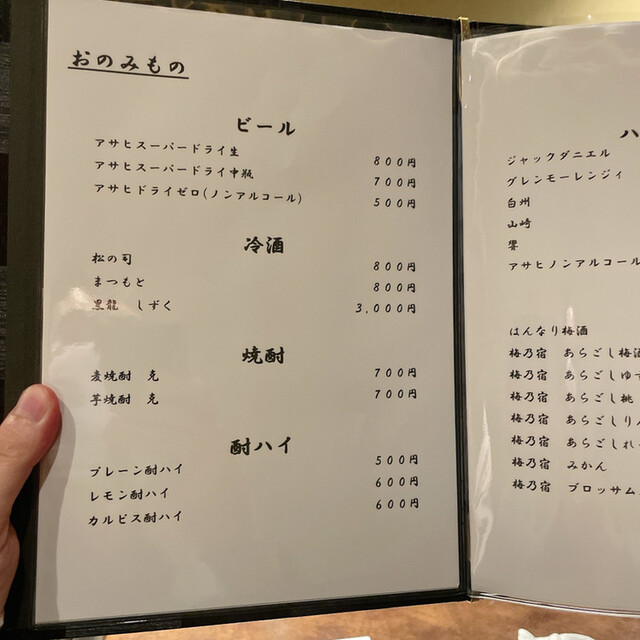 おのみもの
ビール
アサヒスーパードライ生 800円
アサヒスーパードライ中瓶 700円
アサヒドライゼロ(ノンアルコール) 500円
冷酒
松の司 800円
まつもと 800円
黒龍 しずく 3,000円
焼酎
麦焼酎 克 700円
芋焼酎 克 700円
酎ハイ
プレーン酎ハイ 500円
レモン酎ハイ 600円
カルピス酎ハイ 600円
ハ
ジャックダニエル
グレンモーレンジィ
白州
山崎
響
アサヒノンアルコール
はんなり梅酒
梅乃宿 あらごし梅酒
梅乃宿 あらごしゆず
梅乃宿 あらごし桃
梅乃宿 あらごしりん
梅乃宿 あらごしれ
梅乃宿 みかん
梅乃宿 ブロッサム